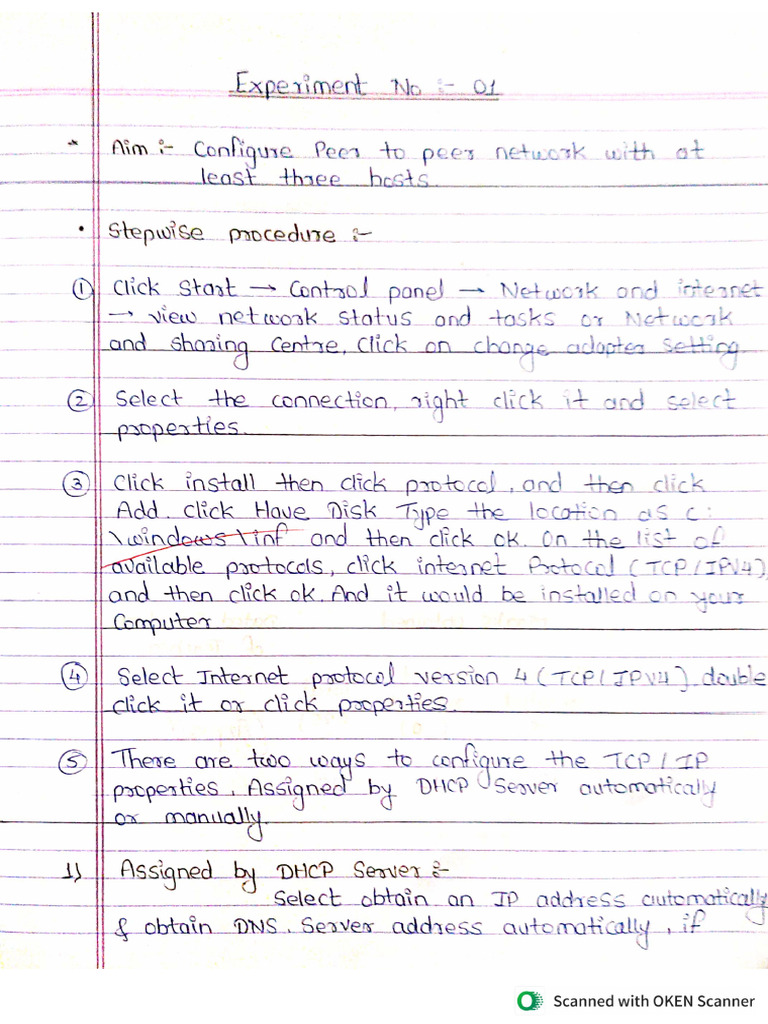 Experiment No :- 01
* Aim :- Configure Peer to peer network with at
least three hosts.
• Stepwise procedure :-
① Click Start → Control panel → Network and internet
→ view network status and tasks or Network
and sharing Centre, Click on change adapter setting
② Select the connection, right click it and select
properties.
③ Click install then click protocol, and then click
Add. click Have Disk Type the location as c:
\windows\inf and then click ok. On the list of
available protocols, click internet Protocol (TCP/IPV4)
and then click ok. And it would be installed on your
Computer
④ Select Internet protocol version 4 (TCP/IPV4). double
click it or click properties.
⑤ There are two ways to configure the TCP/IP
properties. Assigned by DHCP Server automatically
or manually.
1) Assigned by DHCP Server :-
Select obtain an IP address automatically
& obtain DNS. Server address automatically, if
Scanned with OKEN Scanner